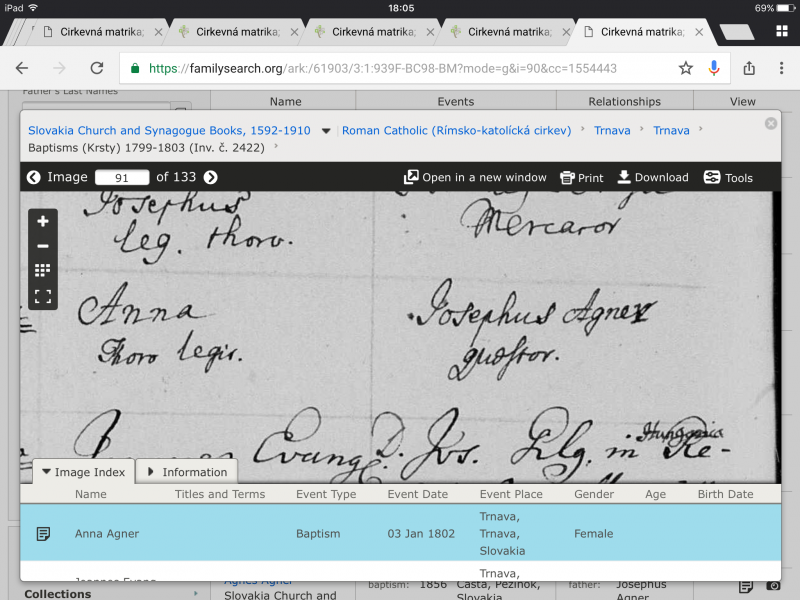 iPad 18:05 69%
Cirkevná matrika; Cirkevná matrika; Cirkevná matrika; Cirkevná matrika; Cirkevná matrika;
https://familysearch.org/ark:/61903/3:1:939F-BC98-BM?mode=g&i=90&cc=1554443
Father's Last Names
Name Events Relationships View
Slovakia Church and Synagogue Books, 1592-1910 Roman Catholic (Rímsko-katolícká cirkev) Trnava Trnava
Baptisms (Krsty) 1799-1803 (Inv. č. 2422)
Image 91 of 133 Open in a new window Print Download Tools
Josephus
leg. thoro. Mercator
Anna Josephus Agner
Thoro legit. quæstor.
Evang. D. Jos. Filg. in Hungaria Re-
Image Index Information
Name Titles and Terms Event Type Event Date Event Place Gender Age Birth Date
Anna Agner Baptism 03 Jan 1802 Trnava, Trnava, Slovakia Female
Trnava,
Collections
Agnes Agner
Slovakia Church and
baptism: 1856 Častá, Pezinok, Slovakia
father: Josephus Agner